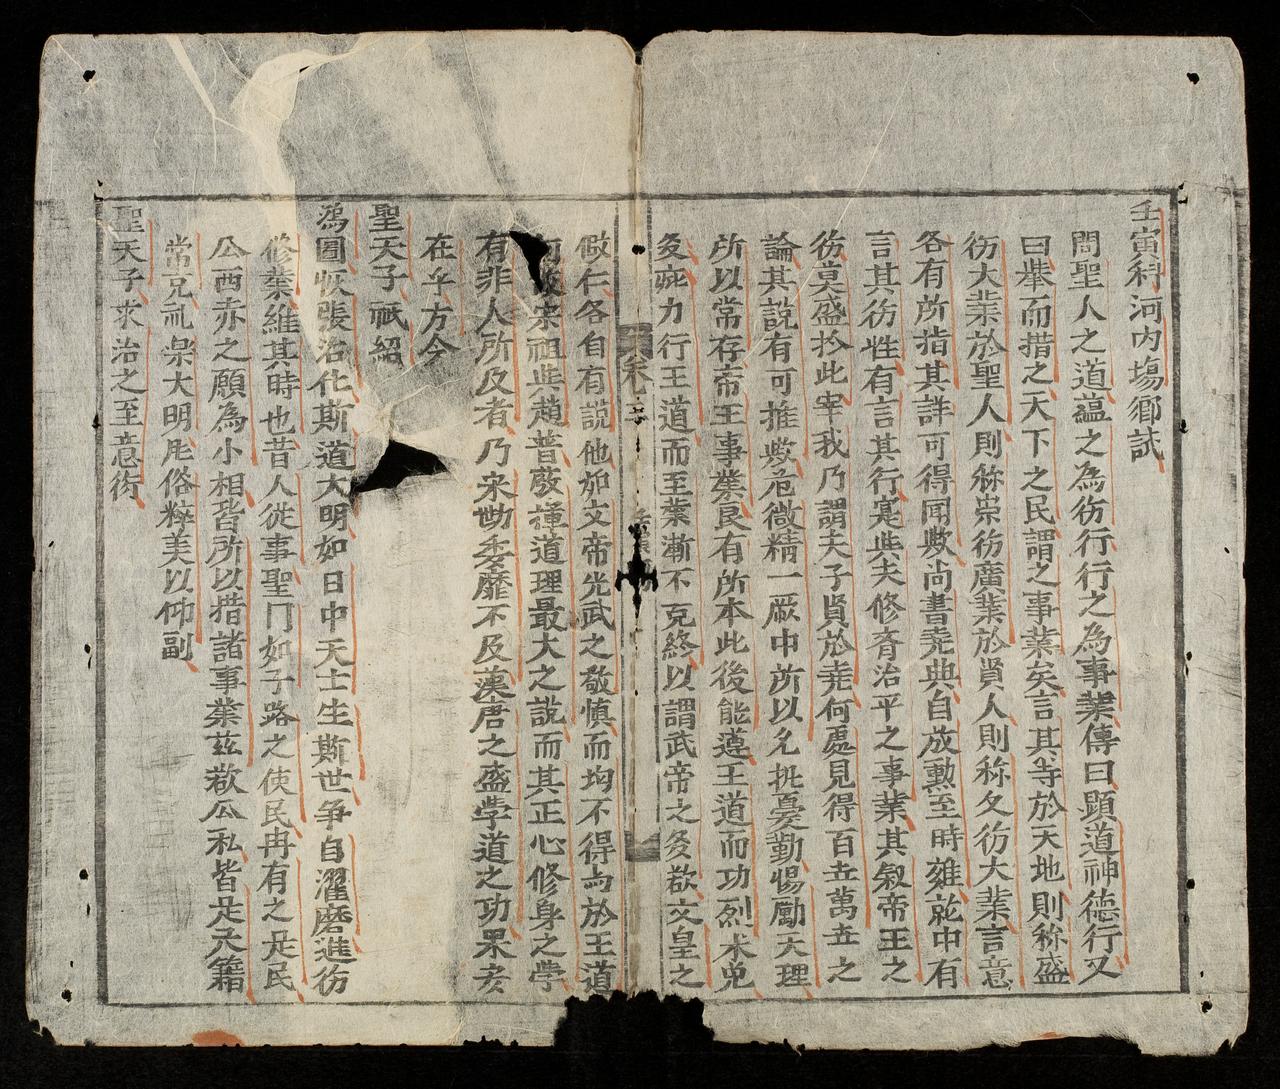 壬寅科河内塲鄉試
問聖人之道蘊之為徳行行之為事業傳曰顯道神德行又
曰舉而措之天下之民謂之事業矣言其等於天地則称盛
徳大業於聖人則称崇徳廣業於貭人則称久徳大業言意
各有所指其詳可得聞歟尚書尭典自放勲至時雍就中有
言其徳性有言其行寔与夫修斉治平之事業其叙帝王之
徳莫盛扵此宰我乃謂夫子貭於尭何處見得百世萬世之
論其説有可推歟危微精一厥中所以允执憂勤惕勵天理
所以常存帝王事業良有所本此後能遵王道而功烈未免
力行王道而至業漸不克終以謂武帝之多欲文皇之
假仁各自有説他如文帝光武之敬慎而均不得与於王道
何故宋祖与趙普發揮道理最大之說而其正心修身之學
有非人所及者乃宋勢委靡不及漢唐之盛學道之功果安
在乎方今
聖天子祇紹
鴻圖恢張治化斯道大明如日中天士生斯世争自濯磨進徳
修業維其時也昔人從事聖门如子路之使民冉有之足民
公西赤之願為小相皆所以措諸事業茲欲公私皆足天籍
常充礼樂大明民俗粹美以仰副
聖天子求治之至意術